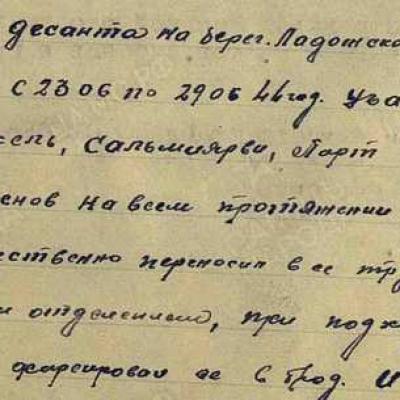 десанта на берег. Ладожско
С 23 06 по 29 06 44 год.
сель, Сальмиярви, Порт
енов на всем протяжении
ественно переносил все тр
отделением, при подх
форсировал